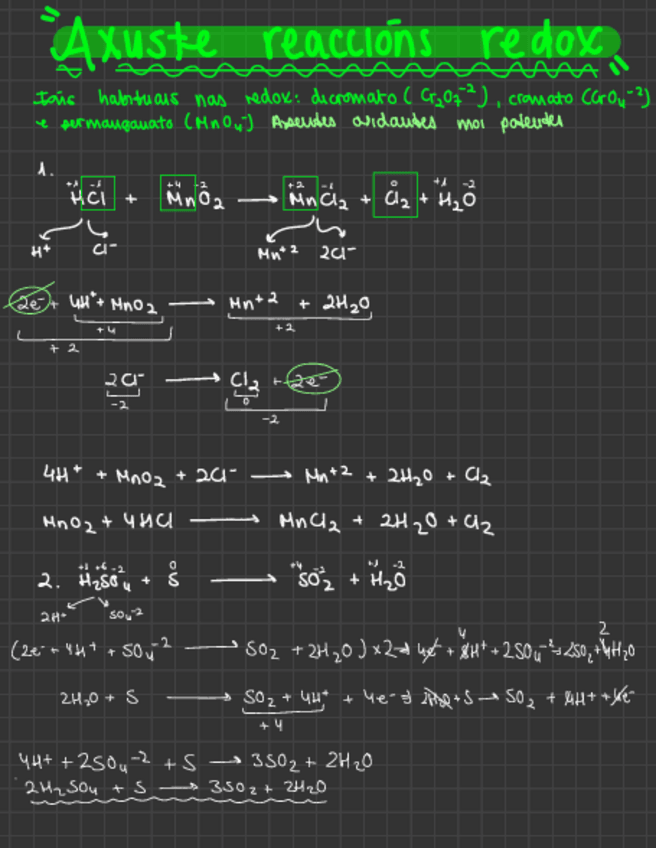 "Axuste reaccións redox"
Ións habituais nas redox: dicromato (Cr₂O₇⁻²), cromato (CrO₄⁻²)
e permanganato (MnO₄⁻) Axentes oxidantes moi potentes
1.
+1 -1 +4 -2 +2 -1 0 +1 -2
HCl + MnO₂ → MnCl₂ + Cl₂ + H₂O
H⁺ Cl⁻ Mn⁺² 2Cl⁻
2e⁻ + 4H⁺ + MnO₂ → Mn⁺² + 2H₂O
+4 +2
+2
2Cl⁻ → Cl₂ + 2e⁻
-2 0
-2
4H⁺ + MnO₂ + 2Cl⁻ → Mn⁺² + 2H₂O + Cl₂
MnO₂ + 4HCl → MnCl₂ + 2H₂O + Cl₂
+1 +6 -2 0 +4 -2 +1 -2
2. H₂SO₄ + S → SO₂ + H₂O
2H⁺ SO₄⁻²
4 2
(2e⁻ + 4H⁺ + SO₄⁻² → SO₂ + 2H₂O) x2 → 4e⁻ + 8H⁺ + 2SO₄⁻² → 2SO₂ + 4H₂O
2H₂O + S → SO₂ + 4H⁺ + 4e⁻ → 2H₂O + S → SO₂ + 4H⁺ + 4e⁻
+4
4H⁺ + 2SO₄⁻² + S → 3SO₂ + 2H₂O
2H₂SO₄ + S → 3SO₂ + 2H₂O